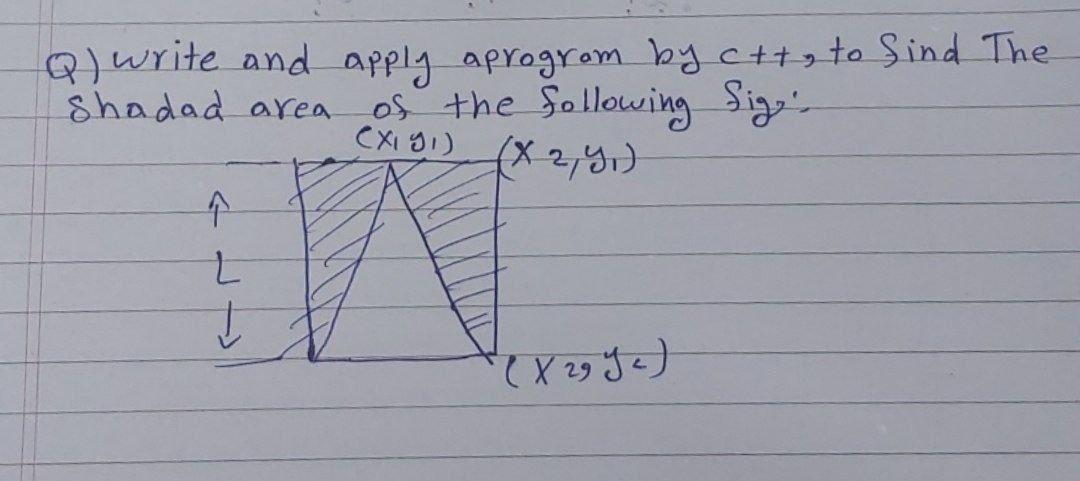 Q) write and apply aprogram by c++, to find The
Shadad area of the following fig:
(x1 y1)
(x2, y1)
L
(x2, y2)